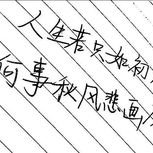 人生若只如初
何事秋风悲画